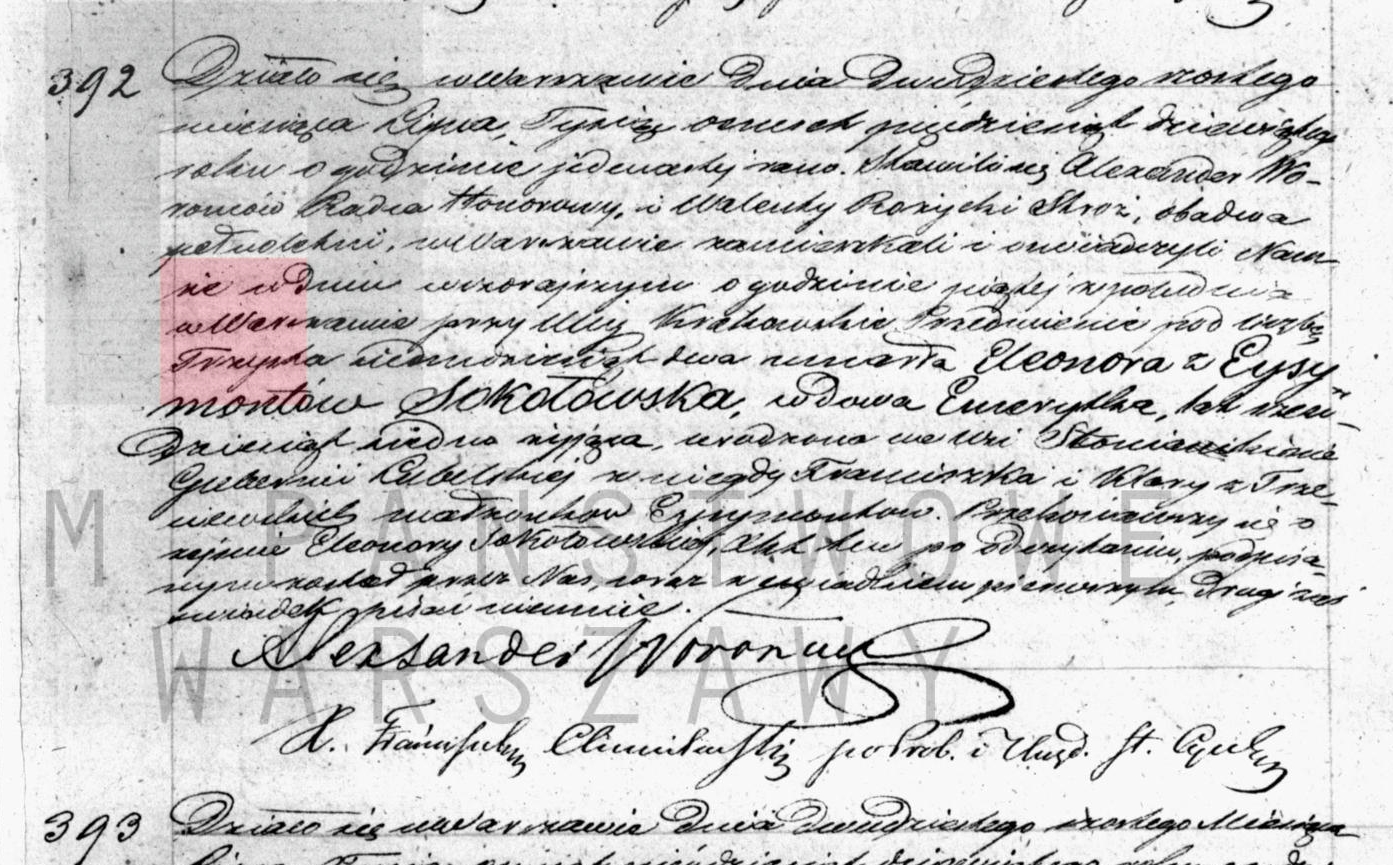 392 Działo się w Warszawie Dnia Dwudziestego szóstego
miesiąca Lipca, Tysiąc ośmset pięćdziesiąt dziewiątego
roku o godzinie jedenastej rano. Stawili się Alexander Wo-
roncow Radca Honorowy, i Walenty Rozycki Stroż, obadwa
pełnoletni, w Warszawie zamieszkali i oświadczyli Nam
że w Dniu wczorajszym o godzinie piątej z południa
w Warszawie przy Ulicy Krakowskie Przedmieście pod liczbą
Trzysta siedmdziesiąt dwa umarła Eleonora z Eysy-
montów Sokołowska, wdowa Emerytka, lat sześć-
dziesiąt siedm żyjąca, urodzona we Wsi
Gubernii Lubelskiej z niegdy Franciszka i Klary z Trze-
małżonków Eysymontów. Przekonawszy się o
zejściu Eleonory Sokołowskiej, Akt ten po odczytaniu, podpisa-
nym został przez Nas, oraz świadkiem pierwszym, Drugi zaś
świadek pisać nieumie.
Aleksander
X. po Prob. i Urzęd. St. Cywil
M PAŃSTWOWE
WARSZAWY
393 Działo się w Warszawie Dnia Dwudziestego szóstego Miesiąca